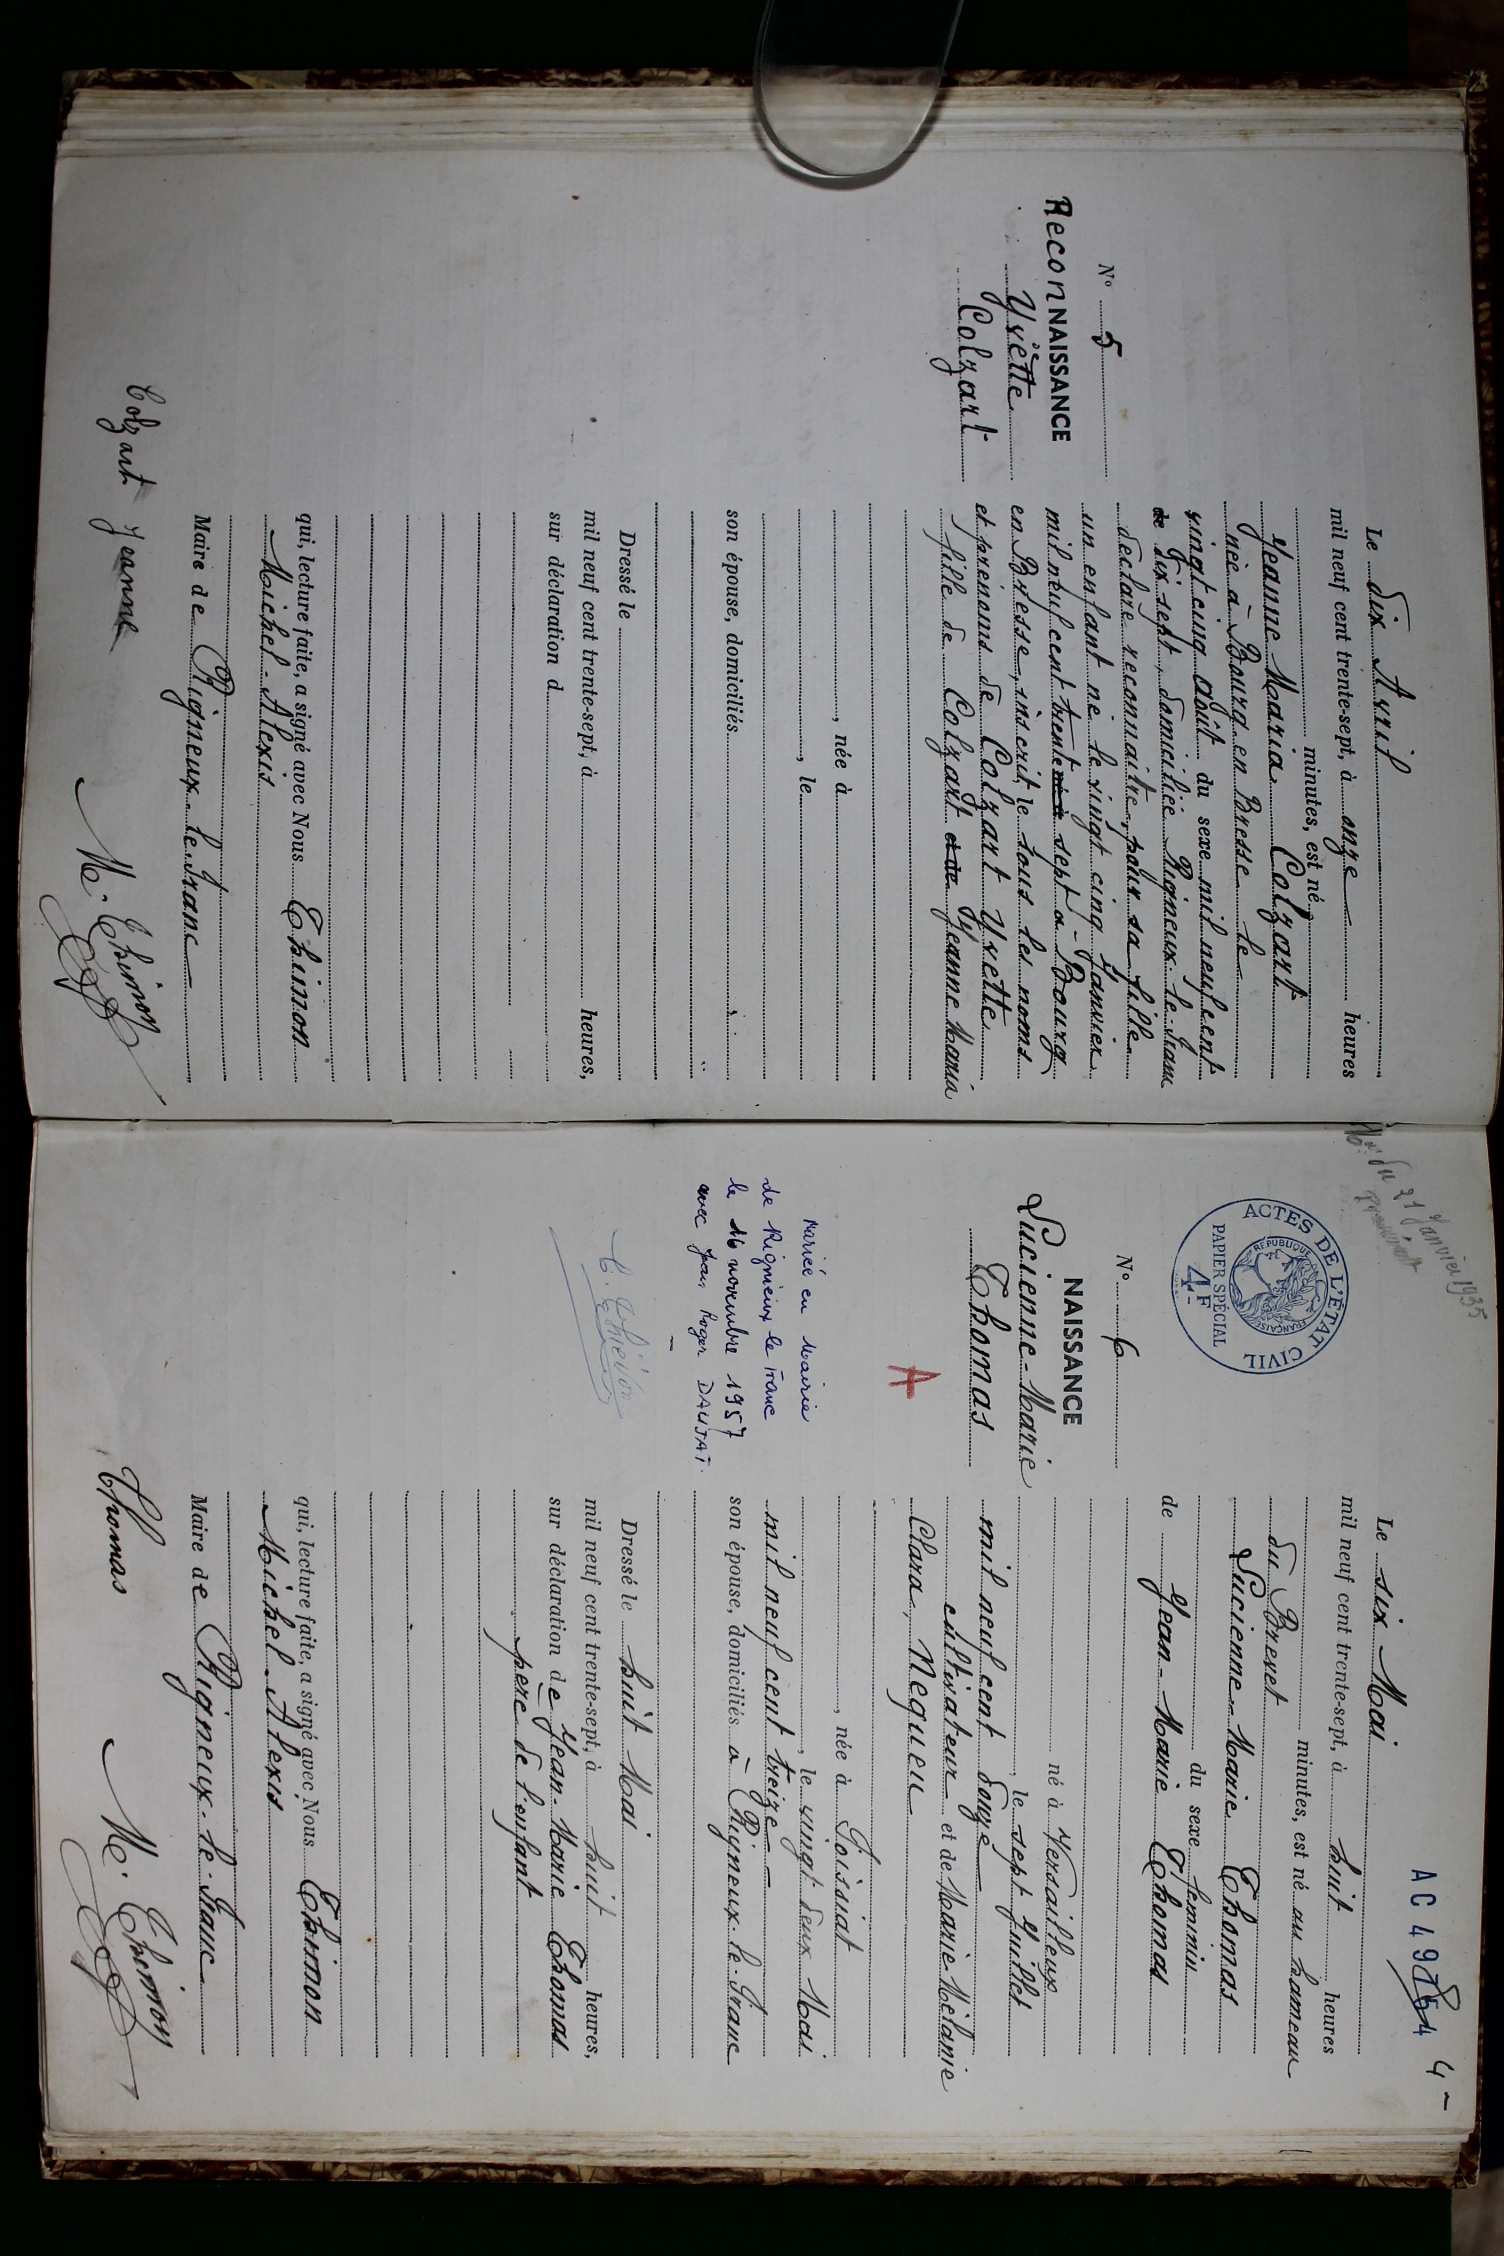 N° 5
ReconNAISSANCE
Yvette
Colzart
Le dix Avril
mil neuf cent trente-sept, à onze heures
minutes, est né
Jeanne Maria Colzart
née à Bourg en Bresse le
vingt cinq août du sexe mil neuf cent
de dix sept, domiciliée Rigneux-le-Franc
déclare reconnaitre, pour sa fille
un enfant né le vingt cinq Janvier
mil neuf cent trente sept à Bourg
en Bresse, inscrit le sous les noms
et prénoms de Colzart Yvette
fille de Colzart et de Jeanne Maria
, née à
, le
son épouse, domiciliés
Dressé le
mil neuf cent trente-sept, à heures,
sur déclaration d
qui, lecture faite, a signé avec Nous Thinon
Michel-Alexis
Maire de Rigneux-le-Franc
Colzart Jeanne
M. Thinon
du 21 Janvier 1935
ACTES DE L'ÉTAT CIVIL
RÉPUBLIQUE FRANÇAISE
PAPIER SPÉCIAL
4F
AC 49754
4
N° 6
NAISSANCE
Lucienne-Marie
Thomas
A
Mariée en Mairie
de Rigneux le Franc
le 16 novembre 1957
avec Jean Roger DAUJAT.
Le six Mai
mil neuf cent trente-sept, à huit heures
minutes, est né au hameau
du Brevet
Lucienne-Marie Thomas
du sexe feminin
de Jean-Marie Thomas
né à Versailleux
, le sept Juillet
mil neuf cent douze
cultivateur et de Marie Mélanie
Clara, Nequeu
, née à Joissiat
, le vingt deux Mai
mil neuf cent treize
son épouse, domiciliés à Rigneux-le-Franc
Dressé le huit Mai
mil neuf cent trente-sept, à huit heures,
sur déclaration de Jean-Marie Thomas
père de l'enfant
qui, lecture faite, a signé avec Nous Thinon
Michel Alexis
Maire de Rigneux-le-Franc
Thomas
M. Thinon